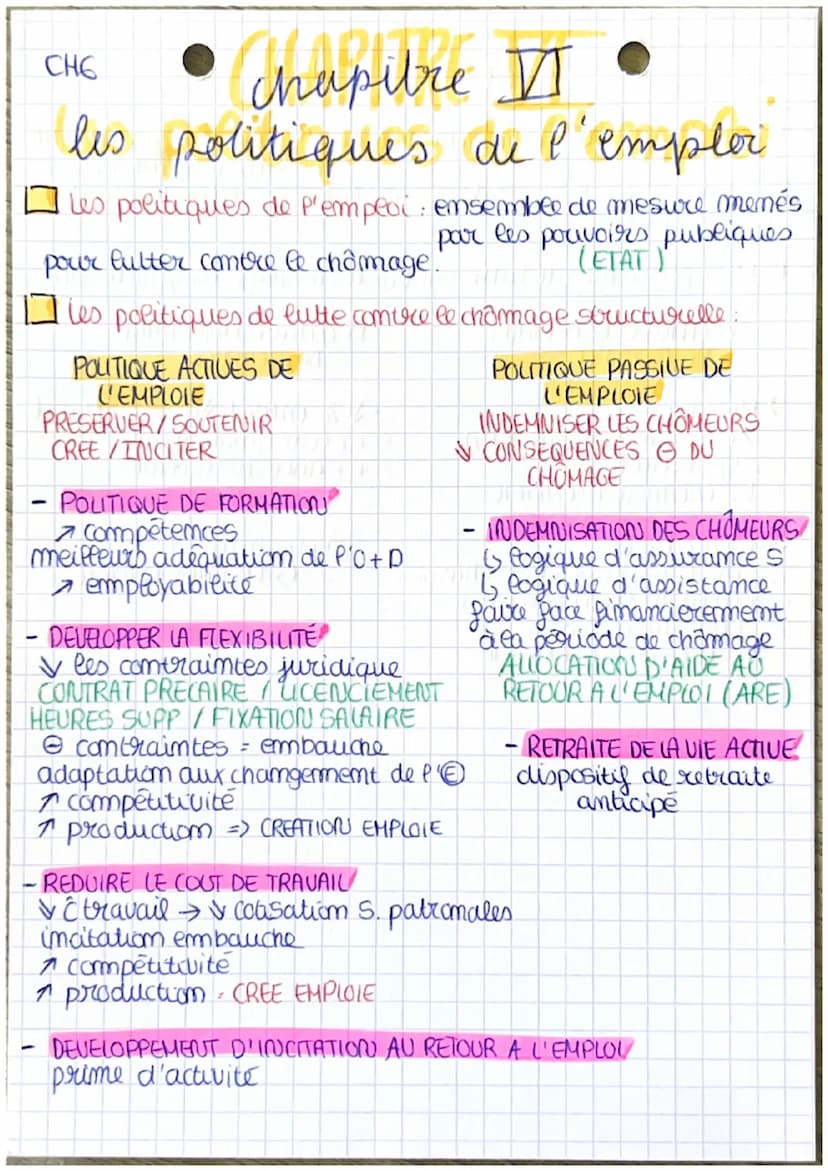 CH6
CHAPITRE VI
chapitre VI
les politiques de l'emploi
Les politiques de l'emploi : ensemble de mesure menés
par les pouvoirs publiques
pour lulter contre le chômage.
(ETAT)
les politiques de lutte contre le chômage structurelle :
POLITIQUE ACTIVES DE
L'EMPLOIE
PRESERVER / SOUTENIR
CREE / INCITER
- POLITIQUE DE FORMATION
↗ compétences
meilleurs adéquation de l'O+D
↗ employabilité
- DEVELOPPER LA FLEXIBILITÉ
↘ les contraintes juridique
CONTRAT PRECAIRE / LICENCIEMENT
HEURES SUPP / FIXATION SALAIRE
⊖ contraintes = embauche
adaptation aux changement de l'Ⓔ
↗ compétitivité
↗ production => CREATION EMPLOIE
- REDUIRE LE COUT DE TRAVAIL
↘ Ĉ travail → ↘ cotisation S. patronales
incitation embauche
↗ compétitivité
↗ production = CREE EMPLOIE
- DEVELOPPEMENT D'INCITATION AU RETOUR A L'EMPLOI
prime d'activité
POLITIQUE PASSIVE DE
L'EMPLOIE
INDEMNISER LES CHÔMEURS
↘ CONSEQUENCES ⊖ DU
CHÔMAGE
- INDEMNISATION DES CHÔMEURS
↳ logique d'assurance S
↳ logique d'assistance
faire face financierement
à la période de chômage
ALLOCATION D'AIDE AU
RETOUR A L'EMPLOI (ARE)
- RETRAITE DE LA VIE ACTIVE
dispositif de retraite
anticipé